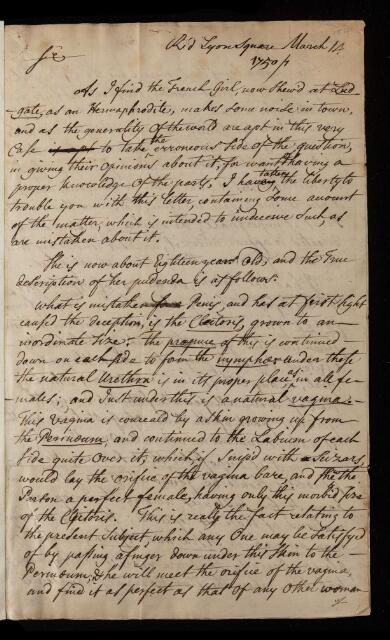 Red Lyon Square March 14.
1750/1
Sir
As I find the French Girl, now shew'd at Lud-
gate, as an Hermaphrodite, makes some noise in town,
and as the generality of the world are apt in this very
Case to take the erroneous side of the question,
in giving their opinions about it, for want of having a
proper knowledge of the parts, I have taken the liberty to
trouble you with this letter, containing some account
of the matter, which is intended to undeceive such as
are mistaken about it.
She is now about Eighteen years old, and the true
description of her pudenda is as follows:
What is mistaken for a Penis, and has at first sight
caused the deception, is the Clitoris, grown to an
inordinate size; the prepuce of this is continued
down on each side to form the nymphae: under these
the natural Urethra is in its proper place as in all fe-
males; and Just under this is a natural vagina:
This vagina is conceald by a skin growing up from
the Perinoeum, and continued to the Labium of each
side quite over it; which if snip'd with Scizars
would lay the orifice of the vagina bare, and then the
Person a perfect female, having only this morbid size
of the Clitoris. This is really the fact relating to
the present Subject, which any One may be satisfyed
of by passing a finger down under this skin to the
Perinoeum, & he will meet the orifice of the vagina,
and find it as perfect as that of any other woman